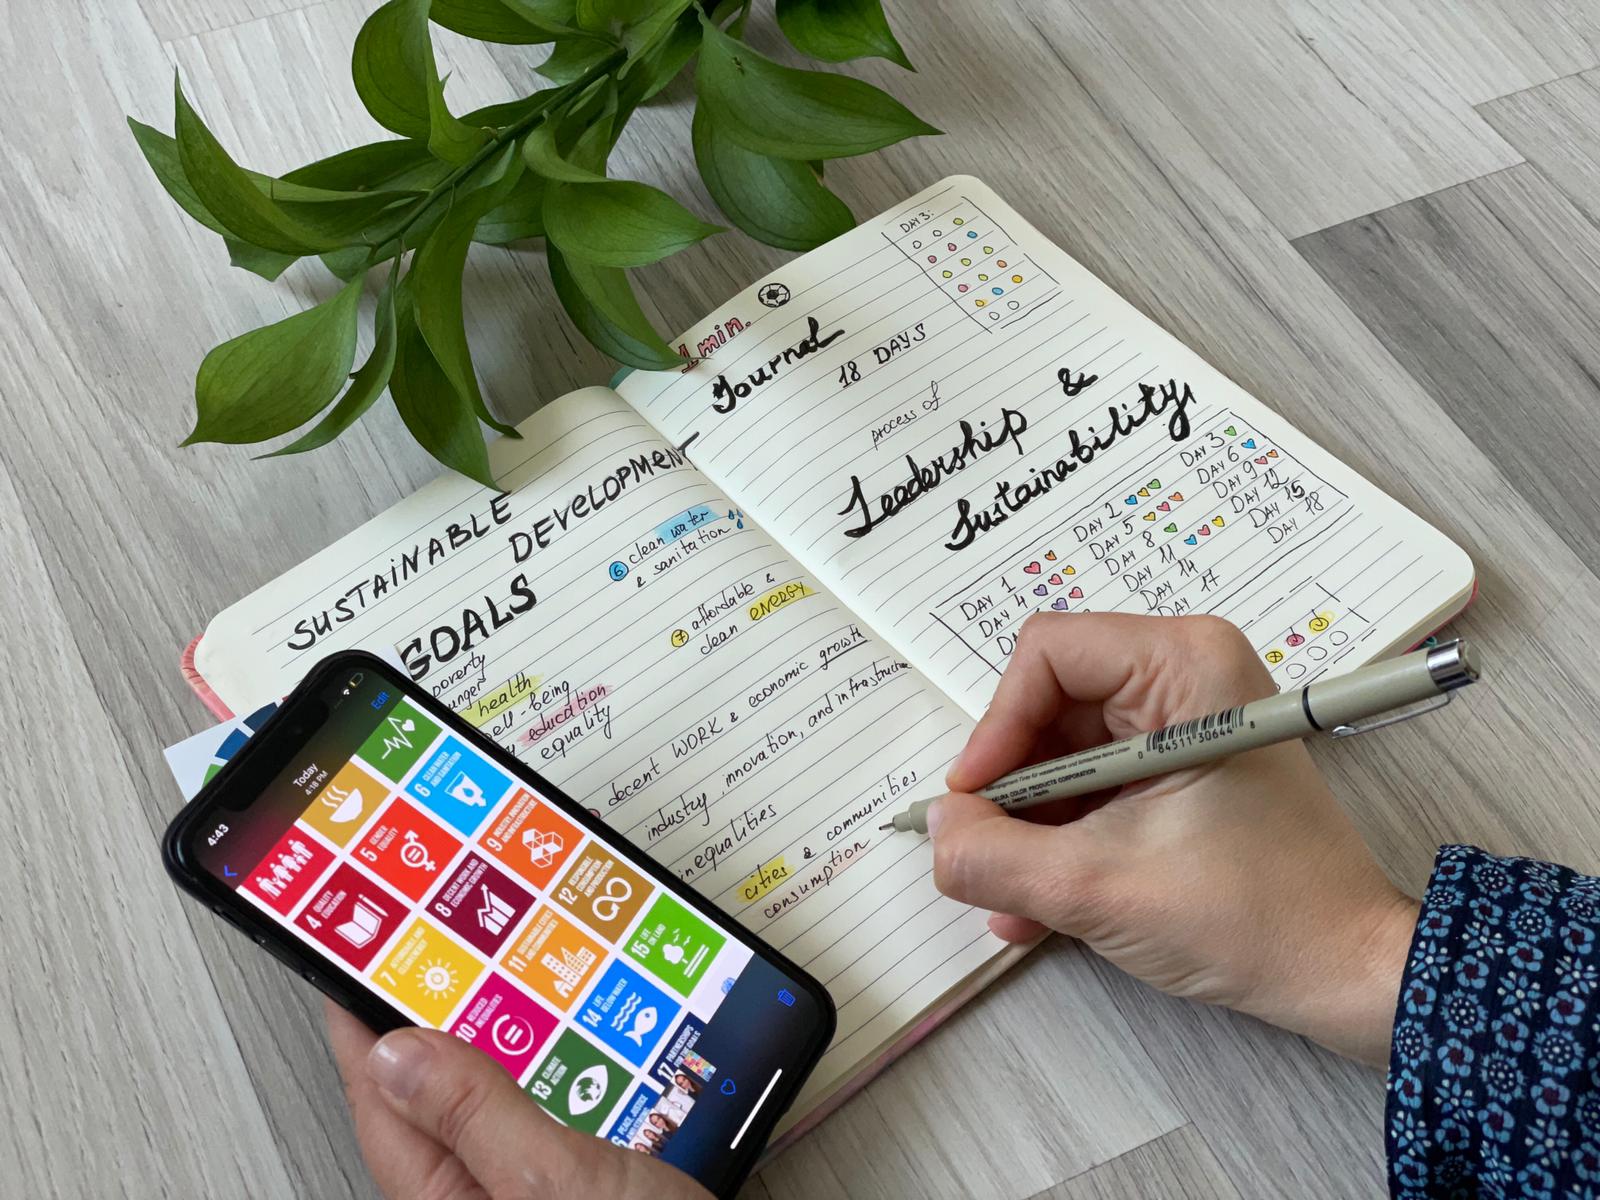 SUSTAINABLE
DEVELOPMENT
GOALS
poverty
health
education
equality
6 clean water
& sanitation
7 affordable &
clean ENERGY
decent WORK & economic growth
industry, innovation, and infrastructure
inequalities
cities & communities
consumption
1 min.
Journal
18 DAYS
process of
Leadership &
Sustainability
DAY 3:
DAY 1 DAY 2 DAY 3
DAY 4 DAY 5 DAY 6
DAY 8 DAY 9
DAY 11 DAY 12
DAY 14 DAY 15
DAY 17 DAY 18
4:43
Today
4:18 PM
Edit
4 QUALITY
EDUCATION
5 GENDER
EQUALITY
6 CLEAN WATER
AND SANITATION
7 AFFORDABLE AND
CLEAN ENERGY
8 DECENT WORK AND
ECONOMIC GROWTH
9 INDUSTRY, INNOVATION
AND INFRASTRUCTURE
10 REDUCED
INEQUALITIES
11 SUSTAINABLE CITIES
AND COMMUNITIES
12 RESPONSIBLE
CONSUMPTION
AND PRODUCTION
13 CLIMATE
ACTION
14 LIFE
BELOW WATER
15 LIFE
ON LAND
PEACE, JUSTICE
AND STRONG
17 PARTNERSHIPS
FOR THE GOALS
0 84511 30644 8
SAKURA COLOR PRODUCTS CORPORATION